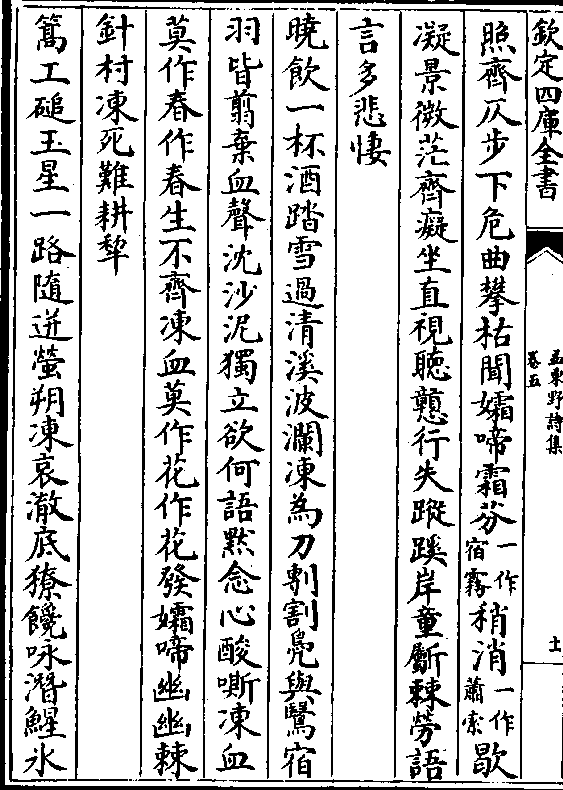 欽定四庫全書
孟東野詩集
卷五
十
照齊仄步下危曲攀枯聞孀啼霜芬一作宿霧稍消一作蕭索歇
凝景微茫齊癡坐直視聽戇行失蹤蹊岸童斸棘勞語
言多悲悽
曉飲一杯酒踏雪過清溪波瀾凍為刀剸割鳧與鷖宿
羽皆翦棄血聲沈沙泥獨立欲何語默念心酸嘶凍血
莫作春作春生不齊凍血莫作花作花發孀啼幽幽棘
針村凍死難耕犂
篙工磓玉星一路隨迸螢朔凍哀澈底獠饞咏潛鯹氷